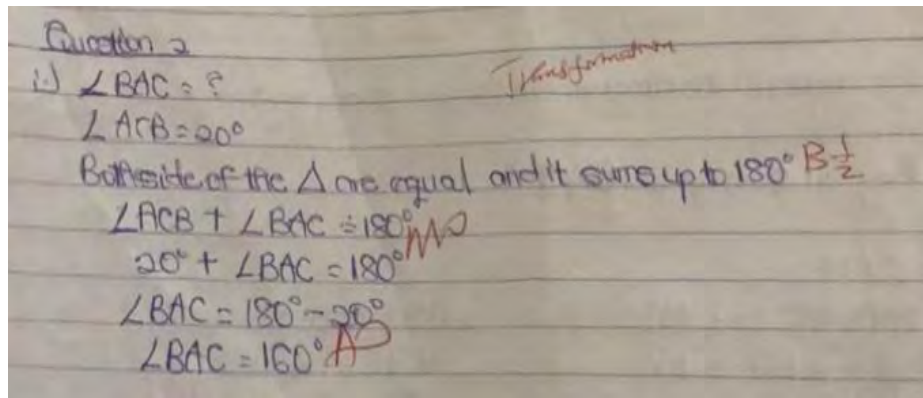 Question 2
i.) ∠BAC = ?
Transformation
∠ACB = 20°
Both side of the △ are equal and it sums up to 180° B½
∠ACB + ∠BAC = 180° M0
20° + ∠BAC = 180°
∠BAC = 180° - 20°
∠BAC = 160° A0